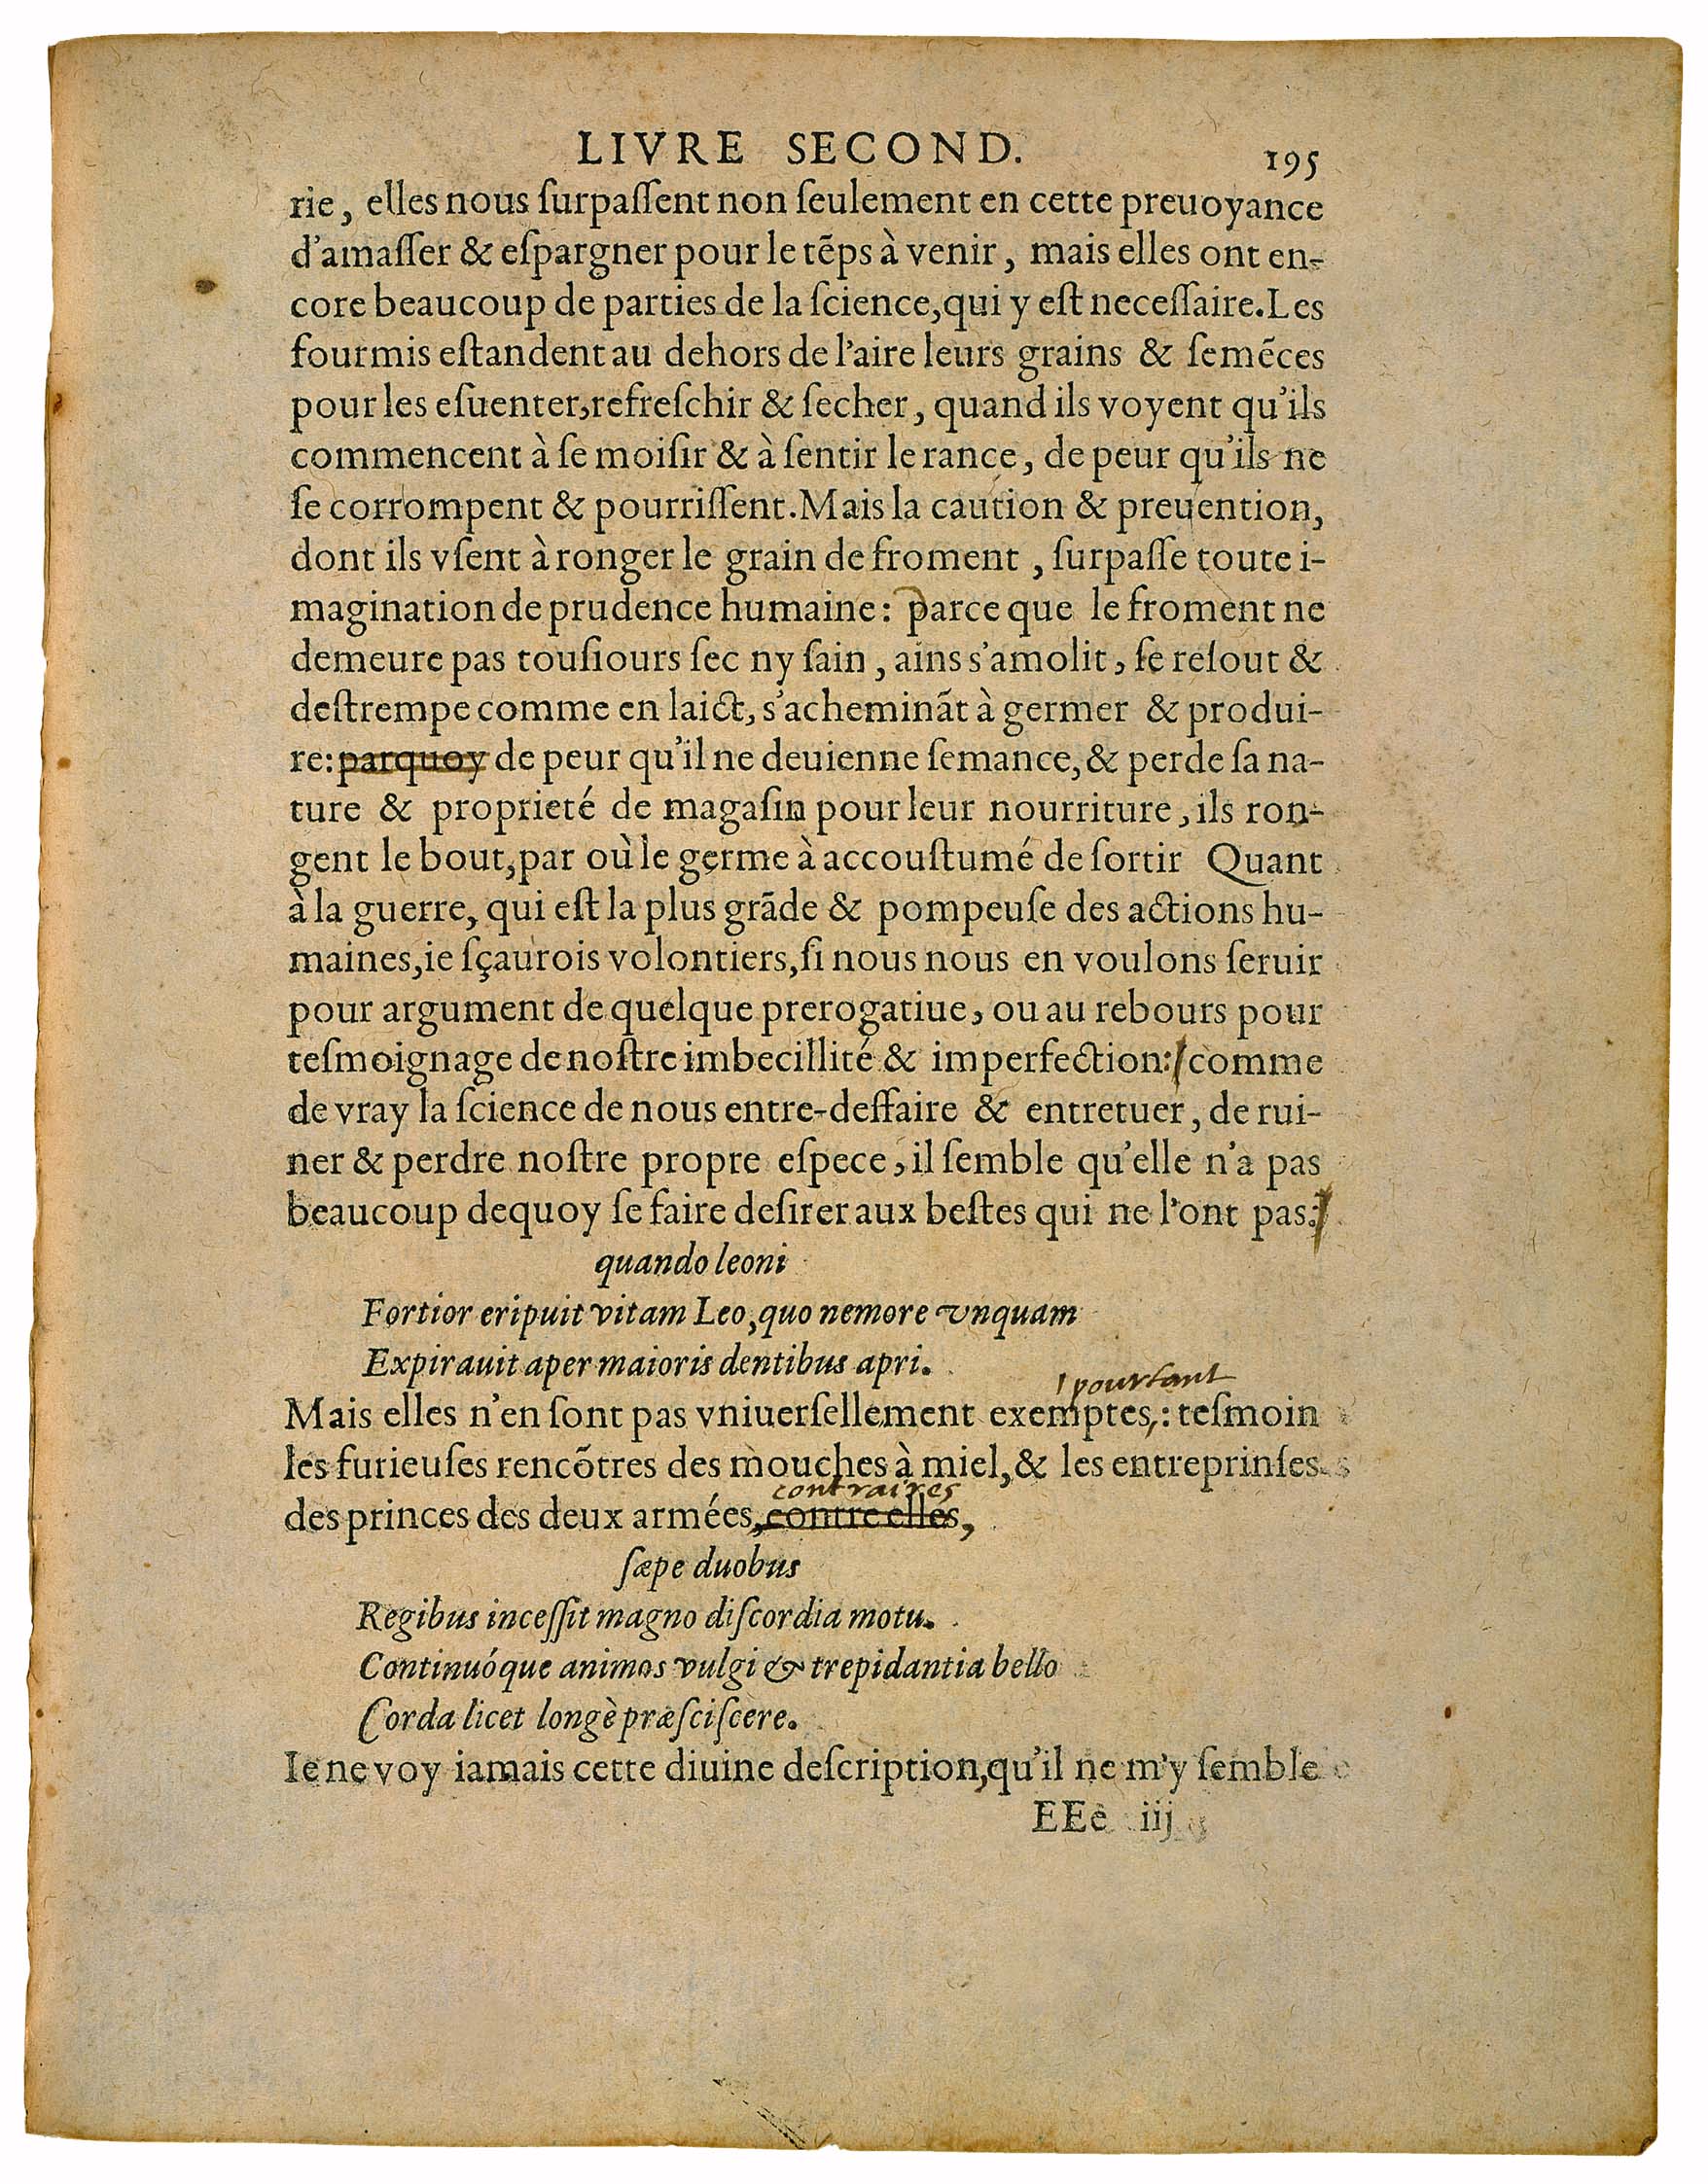 LIVRE SECOND. 195
rie, elles nous ſurpaſſent non ſeulement en cette preuoyance
d'amaſſer & eſpargner pour le tẽps à venir, mais elles ont en-
core beaucoup de parties de la ſcience, qui y eſt neceſſaire. Les
fourmis eſtandent au dehors de l'aire leurs grains & ſemẽces
pour les eſuenter, refreſchir & ſecher, quand ils voyent qu'ils
commencent à ſe moiſir & à ſentir le rance, de peur qu'ils ne
ſe corrompent & pourriſſent. Mais la caution & preuention,
dont ils vſent à ronger le grain de froment, ſurpaſſe toute i-
magination de prudence humaine: parce que le froment ne
demeure pas touſiours ſec ny ſain, ains s'amolit, ſe reſout &
deſtrempe comme en laict, s'acheminãt à germer & produi-
re: parquoy de peur qu'il ne deuienne ſemance, & perde ſa na-
ture & proprieté de magaſin pour leur nourriture, ils ron-
gent le bout, par où le germe à accouſtumé de ſortir Quant
à la guerre, qui eſt la plus grãde & pompeuſe des actions hu-
maines, ie ſçaurois volontiers, ſi nous nous en voulons ſeruir
pour argument de quelque prerogatiue, ou au rebours pour
teſmoignage de noſtre imbecillité & imperfection: comme
de vray la ſcience de nous entre-deffaire & entretuer, de rui-
ner & perdre noſtre propre eſpece, il ſemble qu'elle n'a pas
beaucoup dequoy ſe faire deſirer aux beſtes qui ne l'ont pas:
quando leoni
Fortior eripuit vitam Leo, quo nemore vnquam
Expirauit aper maioris dentibus apri.
pourtant
Mais elles n'en ſont pas vniuerſellement exemptes,: teſmoin
les furieuſes rencõtres des mouches à miel, & les entreprinſes
contraires
des princes des deux armées, contre elles,
ſæpe duobus
Regibus inceſſit magno diſcordia motu.
Continuóque animos vulgi & trepidantia bello
Corda licet longè præſciſcere.
Ie ne voy iamais cette diuine deſcription, qu'il ne m'y ſemble
EEe iij